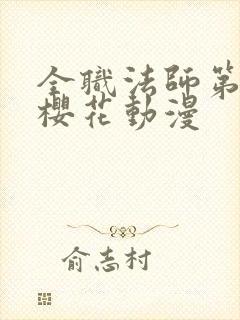 全職法師第
櫻花動漫
俞志村